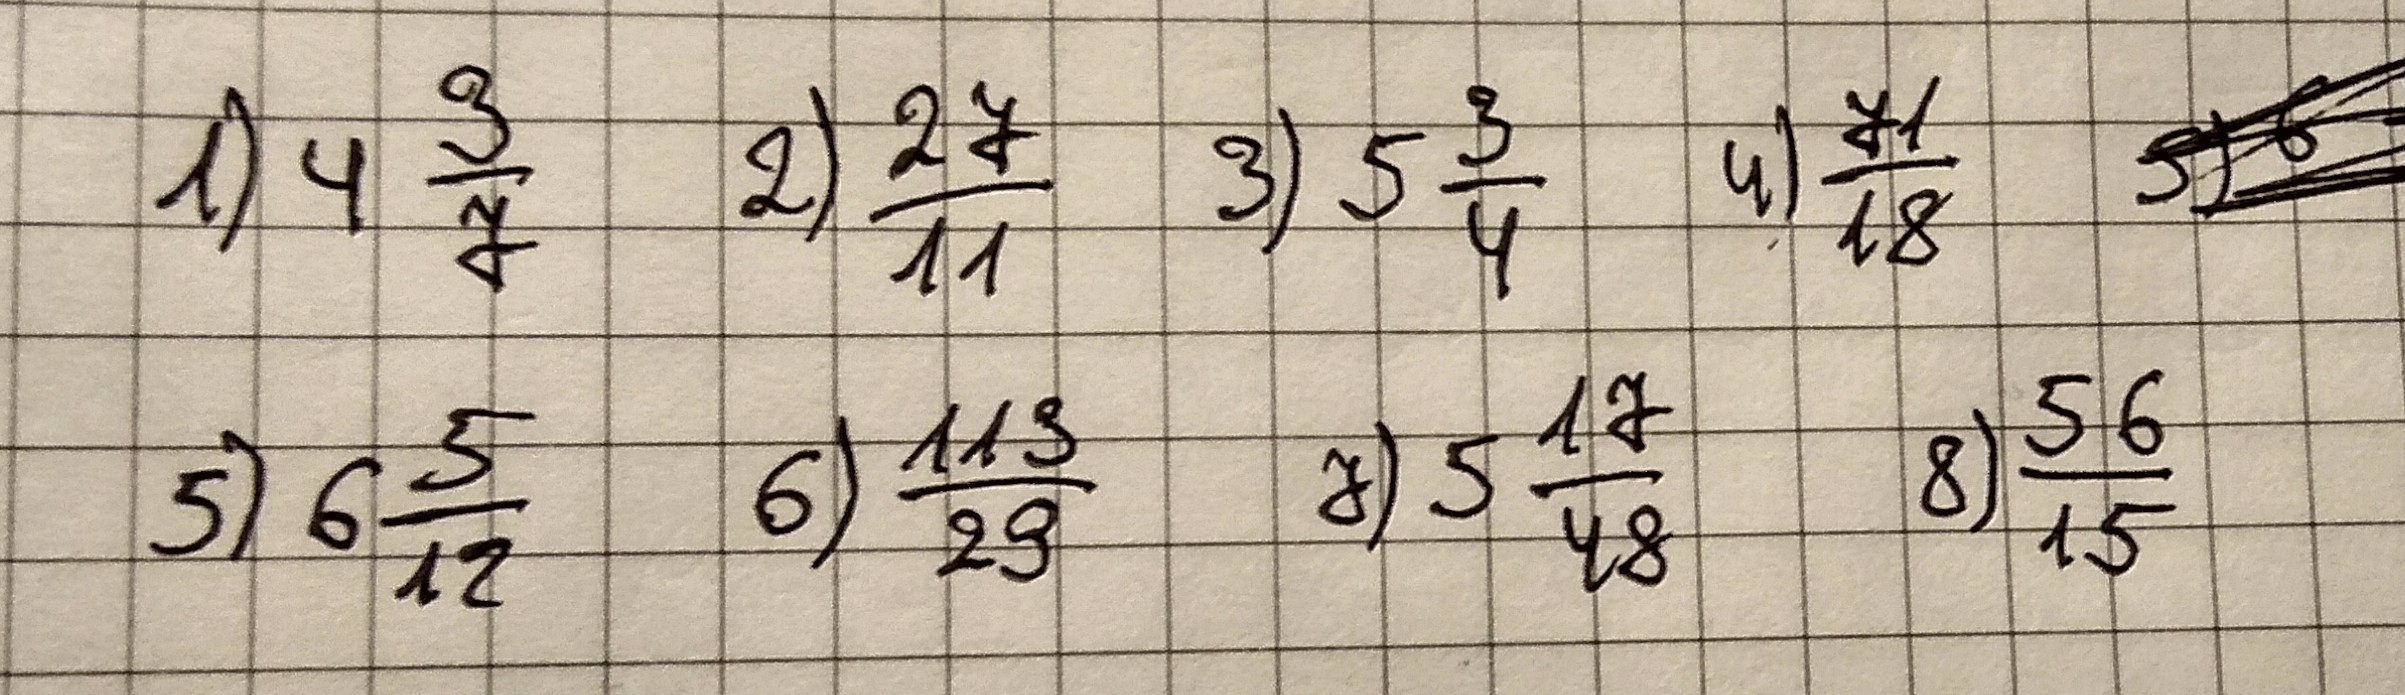 1) 4 3/7 2) 27/11 3) 5 3/4 4) 71/18 5) 6
5) 6 5/12 6) 113/29 7) 5 17/48 8) 56/15